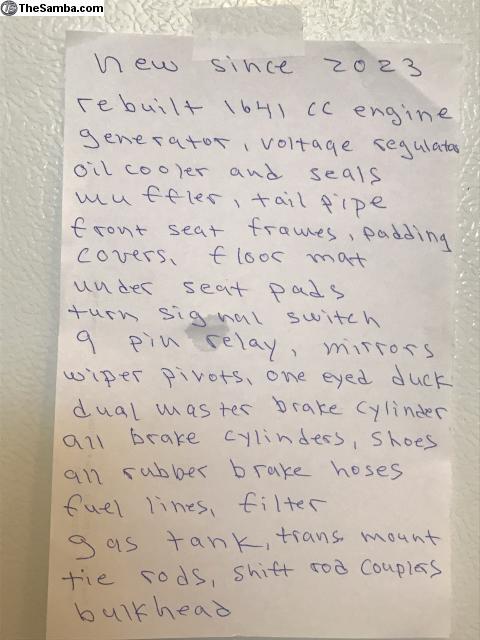 TheSamba.com
new since 2023
rebuilt 1641 cc engine
generator, voltage regulator
oil cooler and seals
muffler, tail pipe
front seat frames, padding
covers, floor mat
under seat pads
turn signal switch
9 pin relay, mirrors
wiper pivots, one eyed duck
dual master brake cylinder
all brake cylinders, shoes
all rubber brake hoses
fuel lines, filter
gas tank, trans mount
tie rods, shift rod couplers
bulkhead